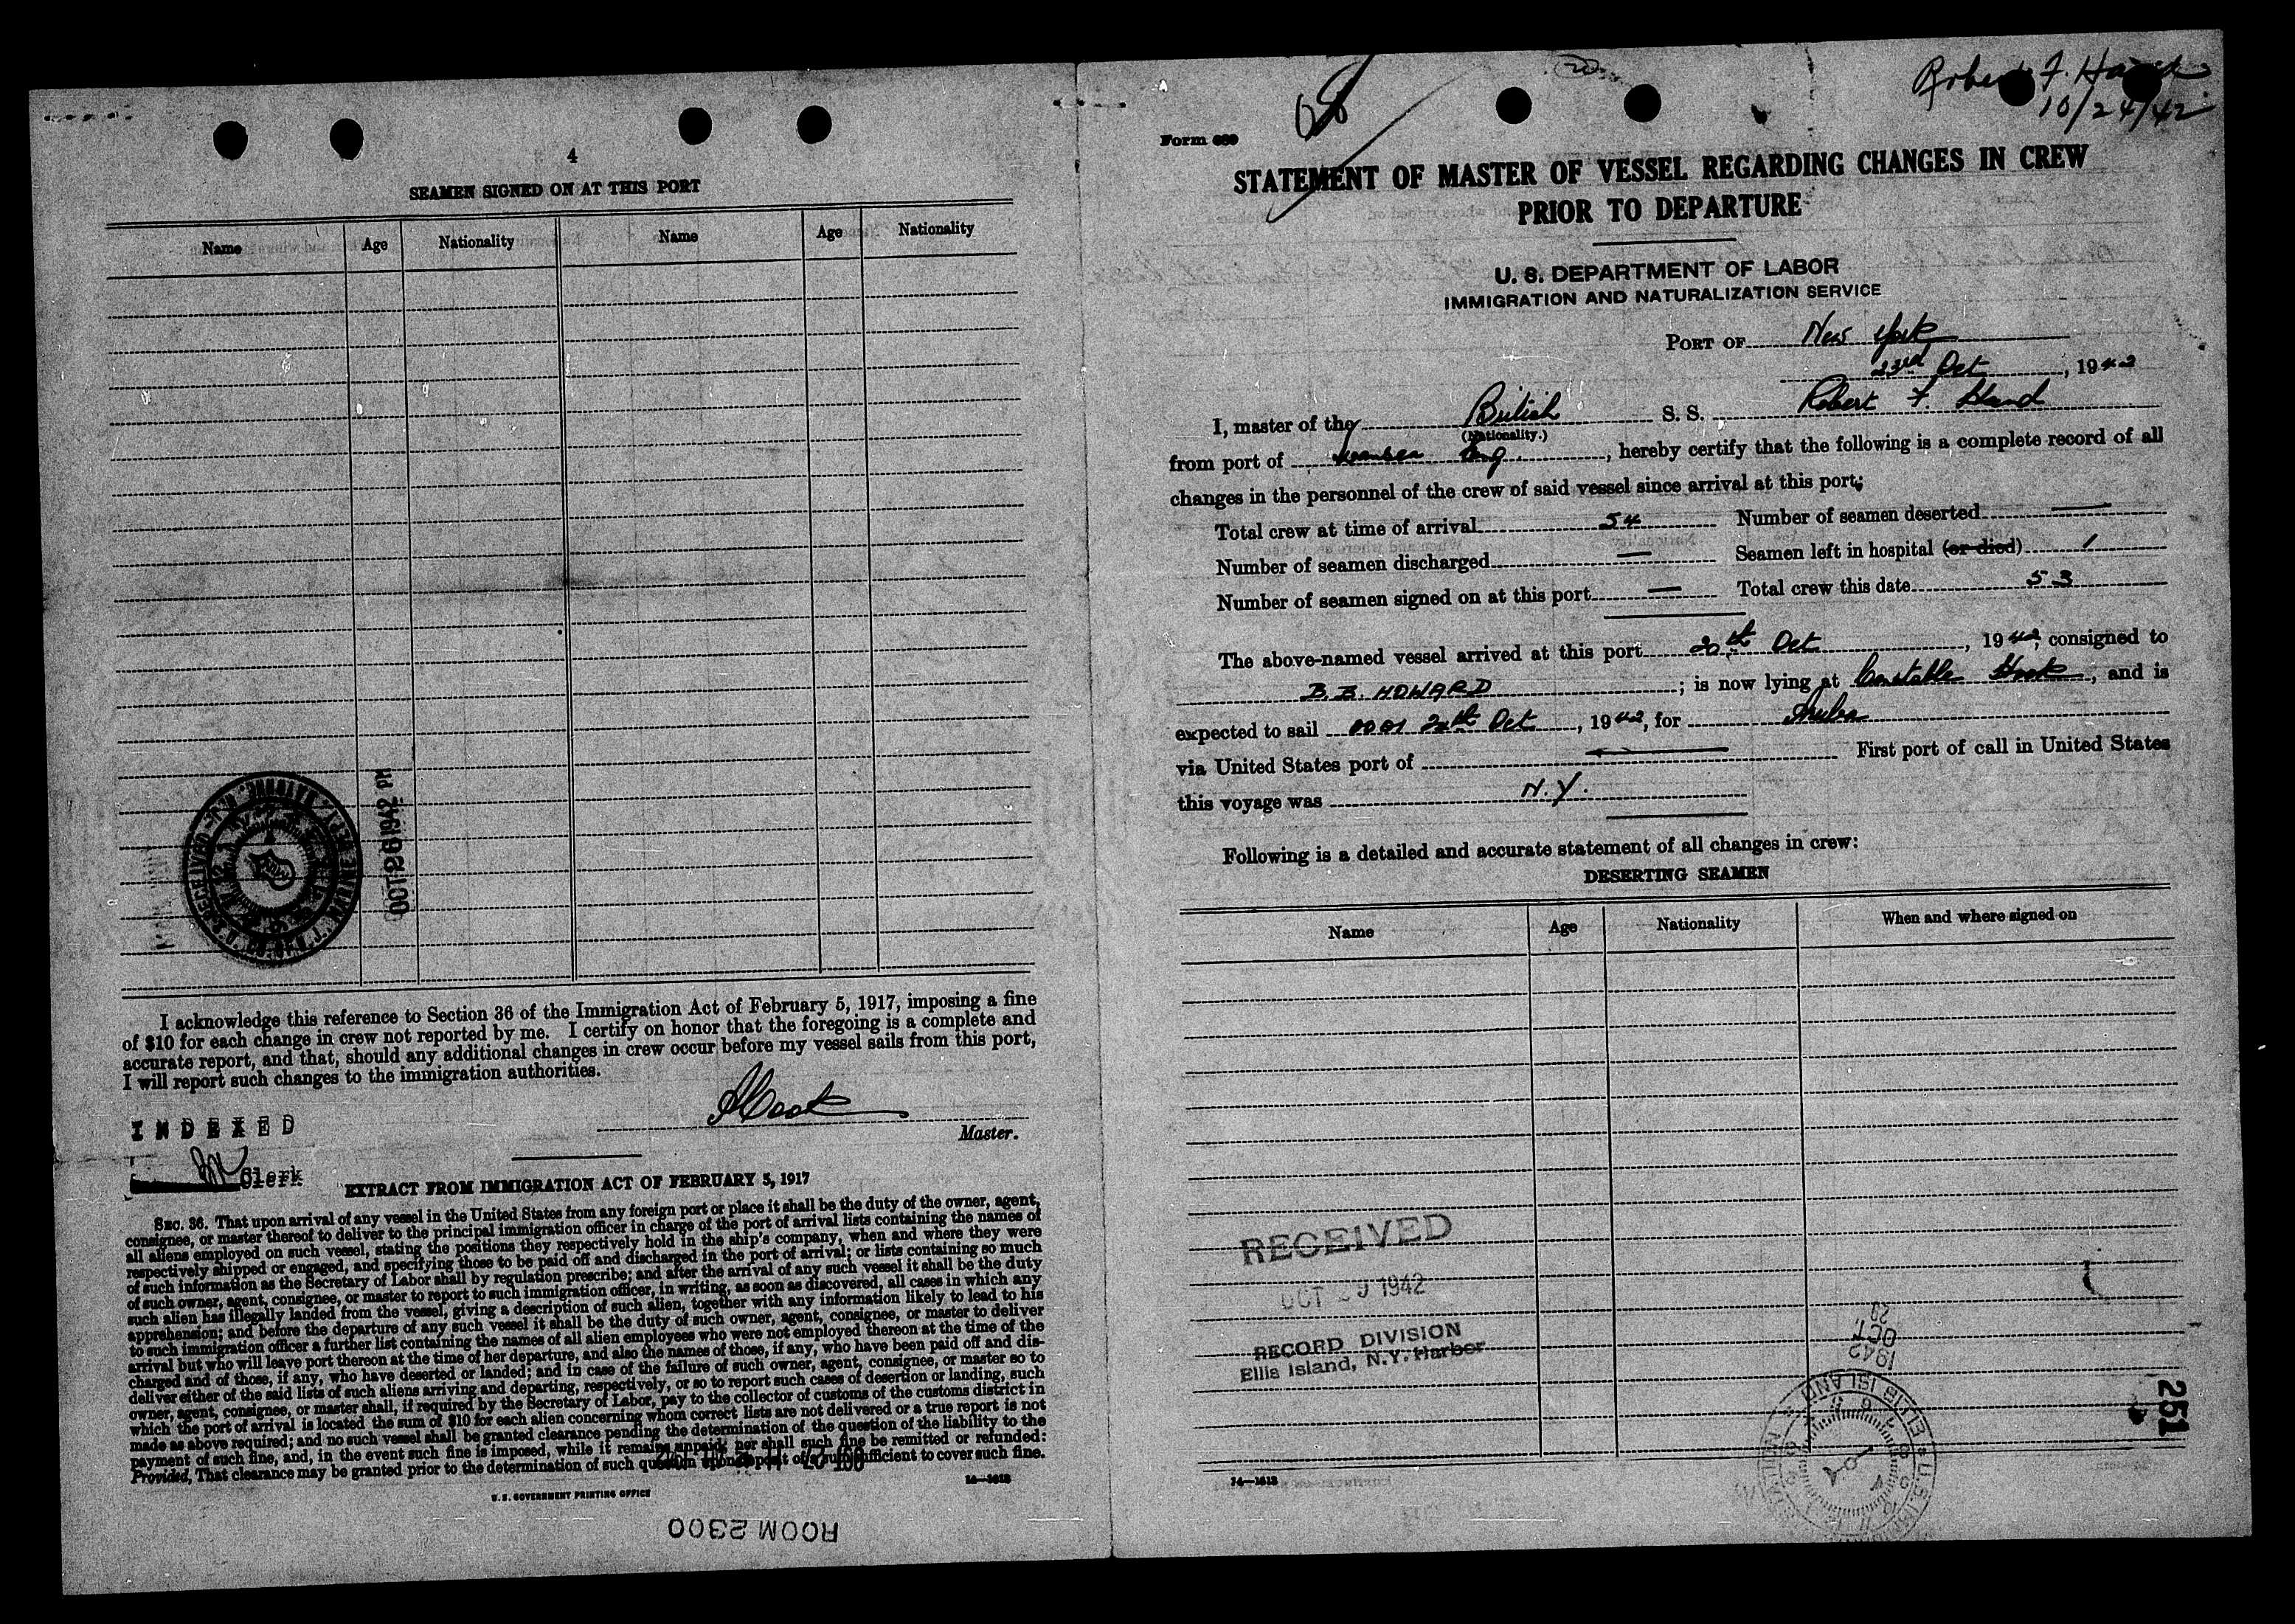 4
SEAMEN SIGNED ON AT THIS PORT
Name Age Nationality Name Age Nationality
OCT 26 1942 PM
I acknowledge this reference to Section 36 of the Immigration Act of February 5, 1917, imposing a fine
of $10 for each change in crew not reported by me. I certify on honor that the foregoing is a complete and
accurate report, and that, should any additional changes in crew occur before my vessel sails from this port,
I will report such changes to the immigration authorities.
INDEXED
Master.
Clerk
EXTRACT FROM IMMIGRATION ACT OF FEBRUARY 5, 1917
SEC. 36. That upon arrival of any vessel in the United States from any foreign port or place it shall be the duty of the owner, agent,
consignee, or master thereof to deliver to the principal immigration officer in charge of the port of arrival lists containing the names of
all aliens employed on such vessel, stating the positions they respectively hold in the ship's company, when and where they were
respectively shipped or engaged, and specifying those to be paid off and discharged in the port of arrival; or lists containing so much
of such information as the Secretary of Labor shall by regulation prescribe; and after the arrival of any such vessel it shall be the duty
of such owner, agent, consignee, or master to report to such immigration officer, in writing, as soon as discovered, all cases in which any
such alien has illegally landed from the vessel, giving a description of such alien, together with any information likely to lead to his
apprehension; and before the departure of any such vessel it shall be the duty of such owner, agent, consignee, or master to deliver
to such immigration officer a further list containing the names of all alien employees who were not employed thereon at the time of the
arrival but who will leave port thereon at the time of her departure, and also the names of those, if any, who have been paid off and dis-
charged and of those, if any, who have deserted or landed; and in case of the failure of such owner, agent, consignee, or master so to
deliver either of the said lists of such aliens arriving and departing, respectively, or so to report such cases of desertion or landing, such
owner, agent, consignee, or master shall, if required by the Secretary of Labor, pay to the collector of customs of the customs district in
which the port of arrival is located the sum of $10 for each alien concerning whom correct lists are not delivered or a true report is not
made as above required; and no such vessel shall be granted clearance pending the determination of the question of the liability to the
payment of such fine, and, in the event such fine is imposed, while it remains unpaid; nor shall such fine be remitted or refunded:
Provided, That clearance may be granted prior to the determination of such question upon deposit of a sum sufficient to cover such fine.
14—1618
U.S. GOVERNMENT PRINTING OFFICE
ROOM 2300
Robert F. Hand
10/24/42
68
Form 680
STATEMENT OF MASTER OF VESSEL REGARDING CHANGES IN CREW
PRIOR TO DEPARTURE
U. S. DEPARTMENT OF LABOR
IMMIGRATION AND NATURALIZATION SERVICE
PORT OF New York
23rd Oct, 1942
I, master of the British S. S. Robert F. Hand
(Nationality.)
from port of Eng., hereby certify that the following is a complete record of all
changes in the personnel of the crew of said vessel since arrival at this port:
Total crew at time of arrival 54 Number of seamen deserted —
Number of seamen discharged — Seamen left in hospital (or died) 1
Number of seamen signed on at this port — Total crew this date 53
The above-named vessel arrived at this port 20th Oct, 1942, consigned to
B. B. HOWARD; is now lying at Constable Hook, and is
expected to sail 0001 24th Oct, 1942, for Aruba
via United States port of — First port of call in United States
this voyage was N.Y.
Following is a detailed and accurate statement of all changes in crew:
DESERTING SEAMEN
Name Age Nationality When and where signed on
RECEIVED
OCT 1942
RECORD DIVISION
Ellis Island, N.Y. Harbor
1942
OCT
23
ELLIS ISLAND
251
14—1618